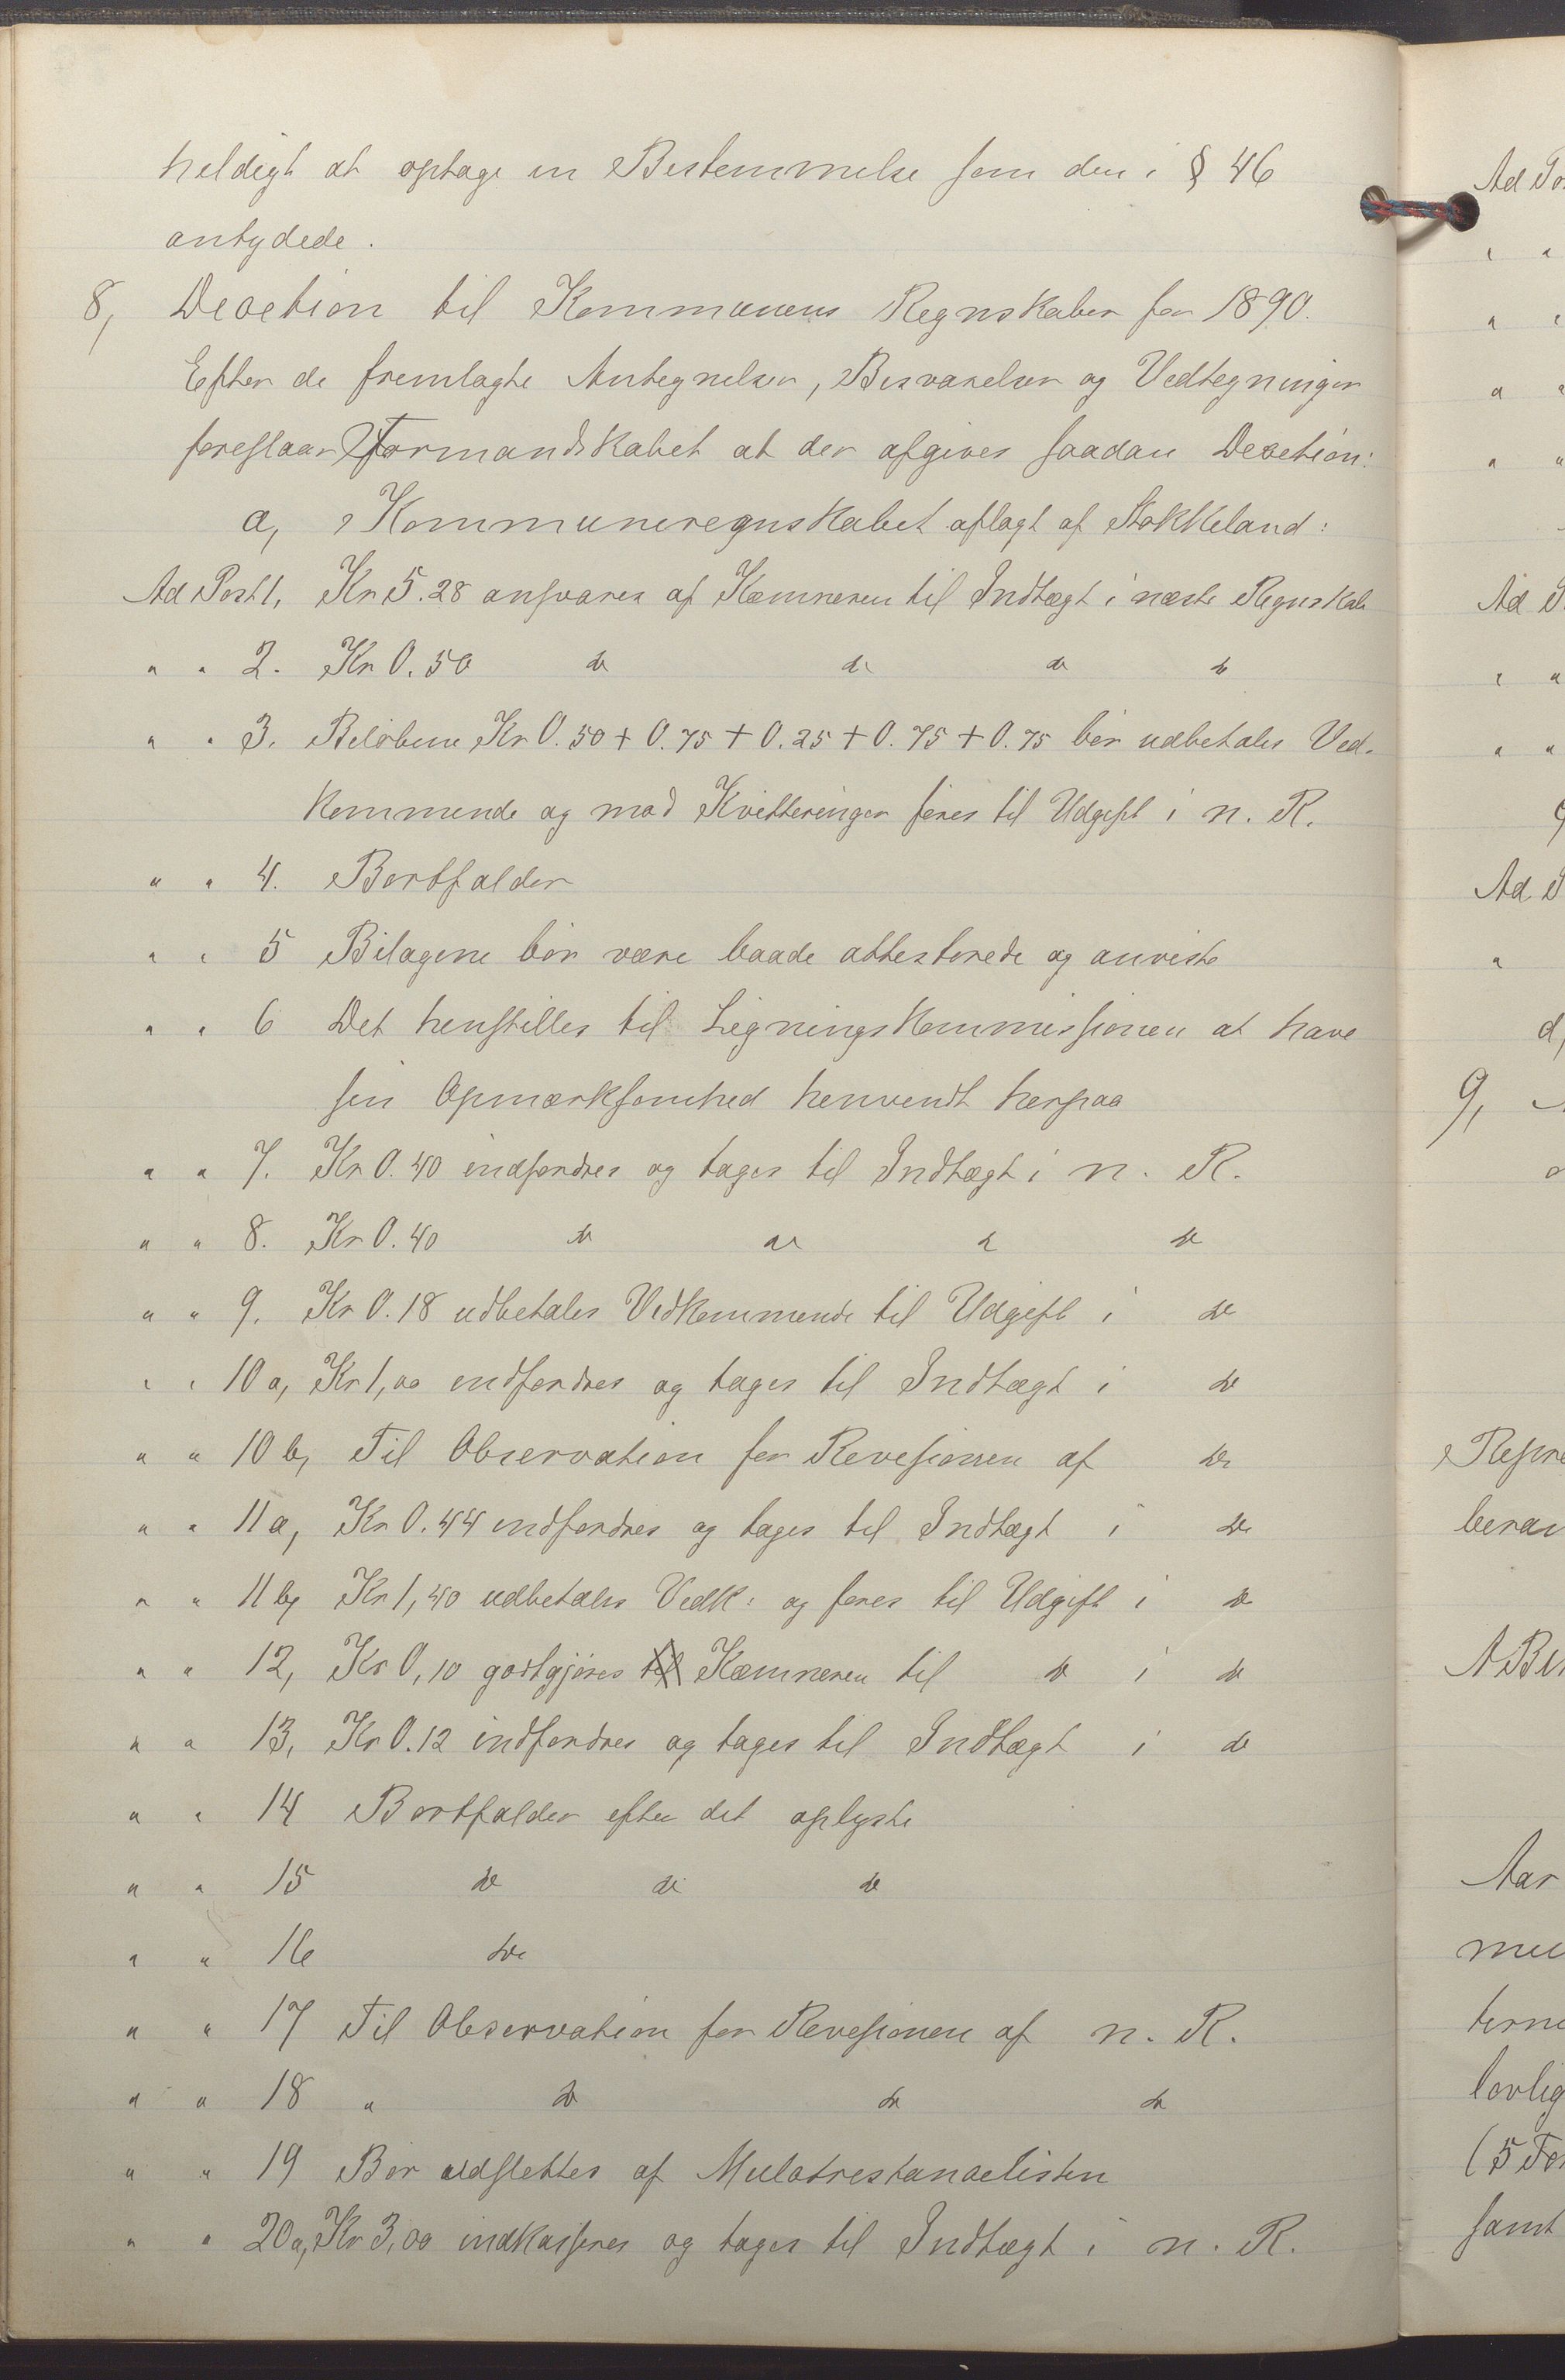 heldigt at optage en Bestemmelse som den i § 46
antydede.
8, Decetion til Kommunens Regnskaber for 1890.
Efter de fremlagte Antegnelser, Besvarelser og Vedtegninger
foreslaar Formandskabet at der afgives saadan Decetion:
a, Kommuneregnskabet aflagt af Stokkeland:
Ad Post 1, Kr 5.28 ansvares af Kæmneren til Indtægt i næste Regnskab
" " 2. Kr 0.50 do do do do
" " 3. Beløbene Kr 0.50 + 0.75 + 0.25 + 0.75 + 0.75 bør udbetales Ved-
kommende og mod Kvitteringer føres til Udgift i n. R.
" " 4. Bortfalder
" " 5 Bilagene bør være baade attesterede og anviste
" " 6 Det henstilles til Ligningskommissionen at have
sin Opmærksomhed henvendt herpaa
" " 7. Kr 0.40 indfordres og tages til Indtægt i n. R.
" " 8. Kr 0.40 do do do do
" " 9. Kr 0.18 udbetales Vedkommende til Udgift i do
" " 10 a, Kr 1,00 indfordres og tages til Indtægt i do
" " 10 b, Til Observation for Revesionen af do
" " 11 a, Kr 0.44 indfordres og tages til Indtægt i do
" " 11 b, Kr 1,40 udbetales Vedk: og føres til Udgift i do
" " 12, Kr 0,10 godtgjøres til Kæmneren til do i do
" " 13, Kr 0.12 indfordres og tages til Indtægt i do
" " 14 Bortfalder efter det oplyste
" " 15 do do do
" " 16 do
" " 17 Til Observation for Revesionen af n. R.
" " 18 " do do do
" " 19 Bør udslettes af Mulctrestancelisten
" " 20 a, Kr 3,00 indkasseres og tages til Indtægt i n. R.